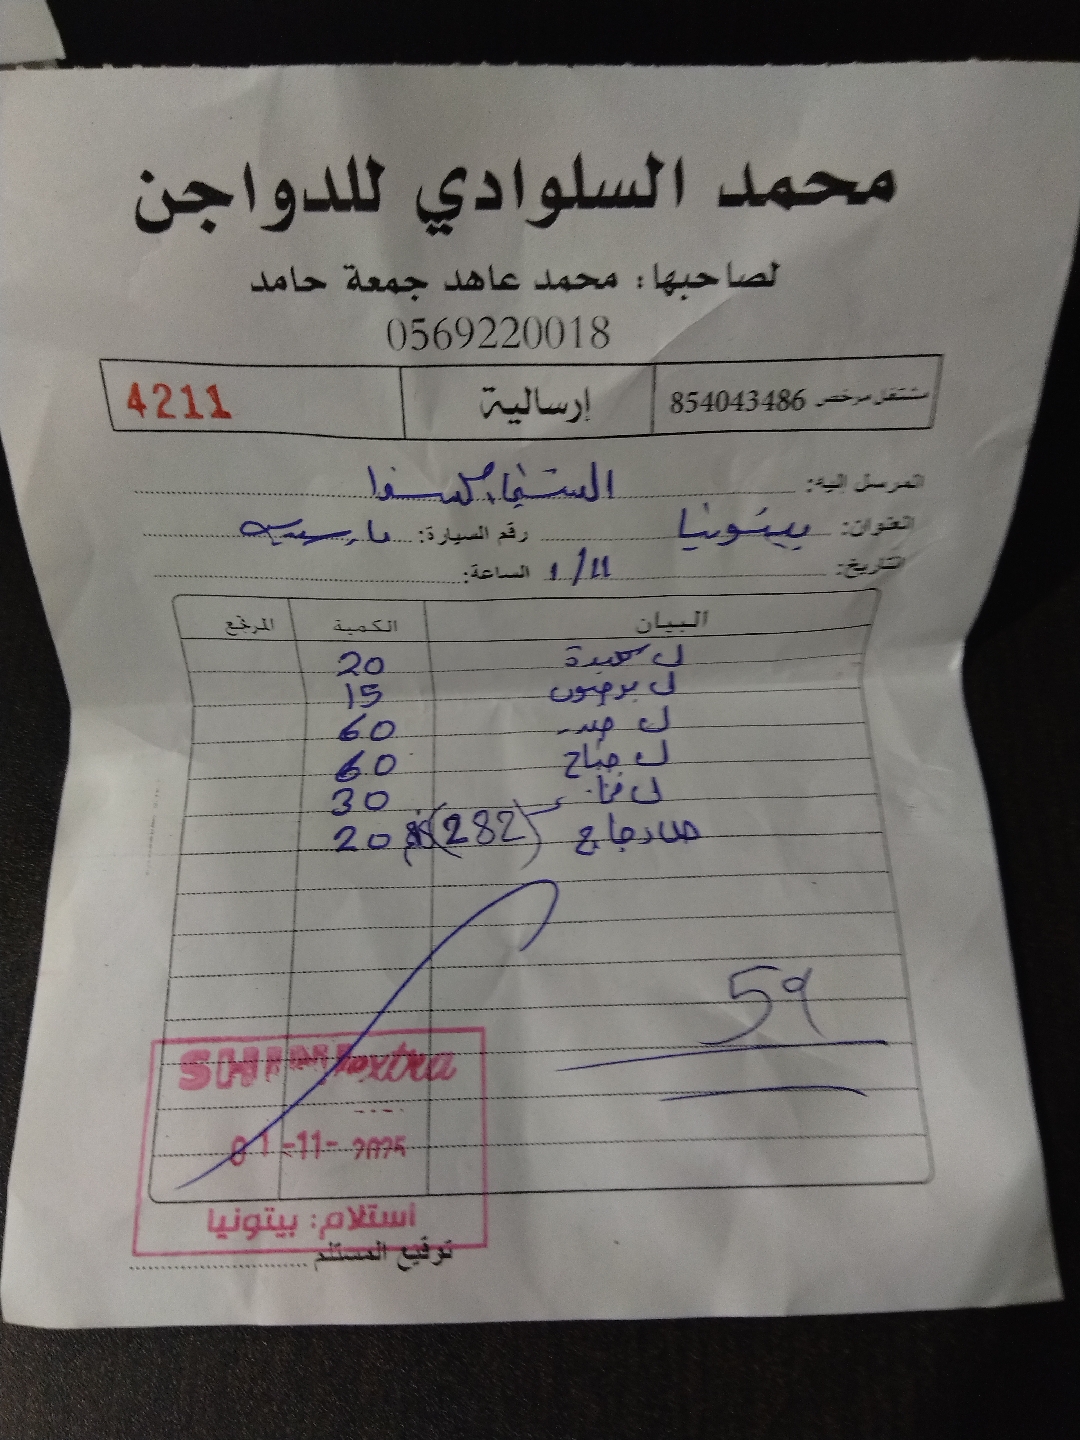 محمد السلوادي للدواجن
لصاحبها: محمد عاهد جمعة حامد
0569220018
مشتغل مرخص 854043486 إرسالية 4211
المرسل إليه:
العنوان: بيتونيا رقم السيارة:
التاريخ: 1/11 الساعة:
البيان الكمية المرجع
ل كبدة 20
ل 15
ل صدر 60
ل جناح 60
ل 30
دجاج (282) 20
59
SHINI extra
01-11-2025
استلام: بيتونيا
توقيع المستلم